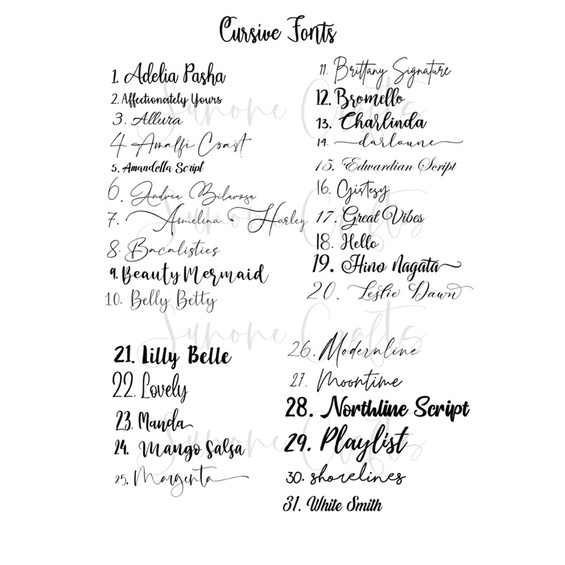 Cursive Fonts
1. Adelia Pasha
2. Affectionately Yours
3. Allura
4. Amalfi Coast
5. Amandella Script
6. Andrea Bilarose
7. Armelina & Harley
8. Bacalisties
9. Beauty Mermaid
10. Belly Betty
11. Brittany Signature
12. Bromello
13. Charlinda
14. darlaune
15. Edwardian Script
16. Gistesy
17. Great Vibes
18. Hello
19. Hino Nagata
20. Leslie Dawn
21. Lilly Belle
22. Lovely
23. Manda
24. Mango Salsa
25. Margenta
26. Modernline
27. Moontime
28. Northline Script
29. Playlist
30. shorelines
31. White Smith